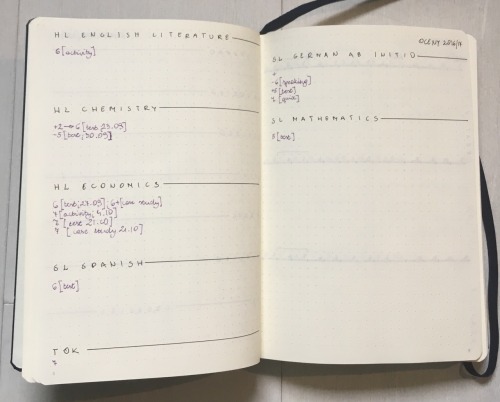 HL ENGLISH LITERATURE
6 [activity]
HL CHEMISTRY
+2 → 6 [test, 23.09]
-5 [test, 30.09]
HL ECONOMICS
6 [test, 27.09] ; 6+ [case study]
7 [activity, 4.10]
7 [test 21.10]
7 [case study 21.10]
SL SPANISH
6 [test]
TOK
OCENY 2016/17
SL GERMAN AB INITIO
-6 [speaking]
[test]
7 [quiz]
SL MATHEMATICS
5 [test]